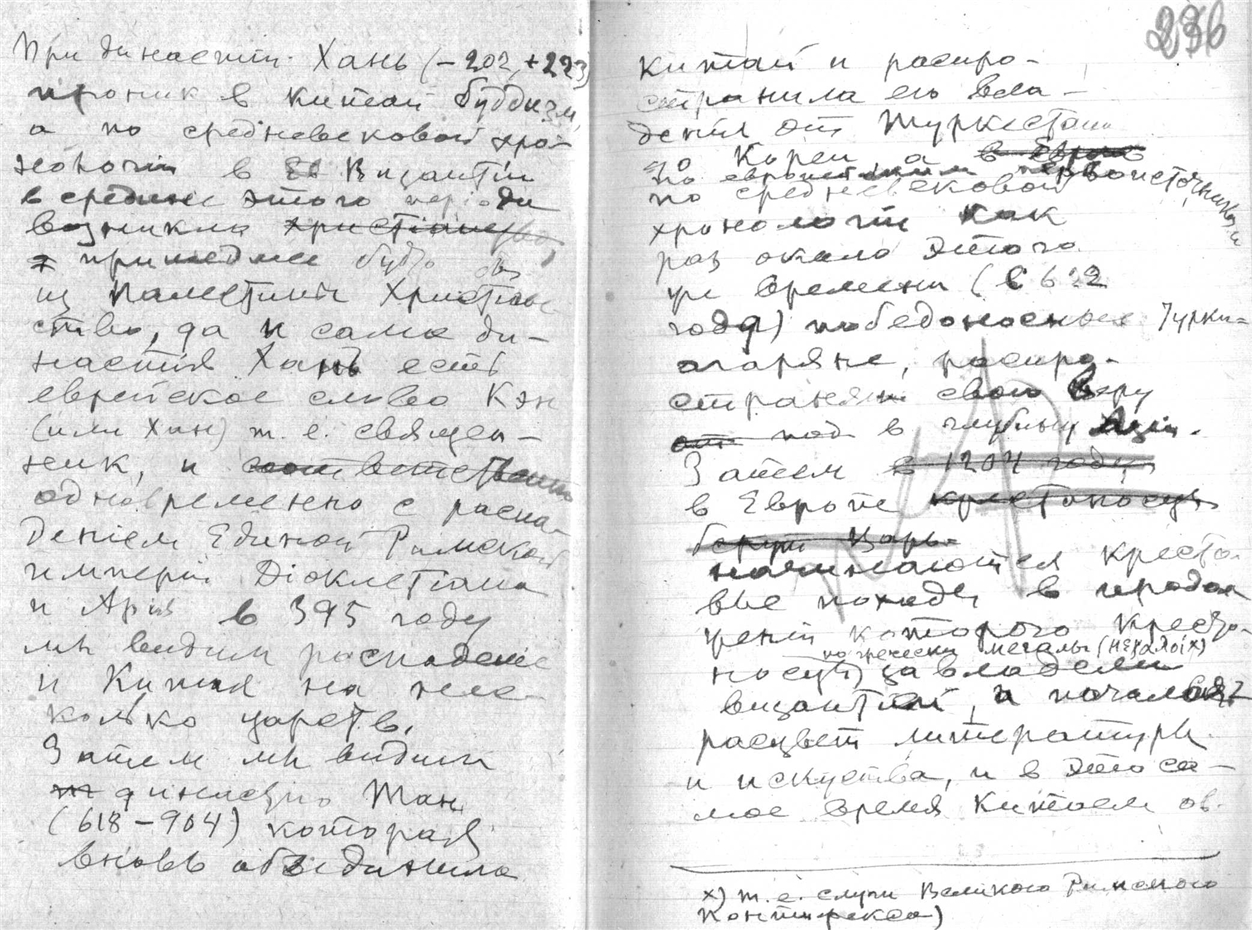 При династіи Хань (–202, +223)
проник в Китай буддизм,
а по средневековой хро-
нологіи в Византіи
в средине этого періода
возникло христіанство,
пришедшее будто бы
из Палестины Христіан-
ство, да и сама ди-
настія Хань есть
еврейское слово Кэн
(или Хин) т. е. священ-
ник, и соответственно
одновременно с распа-
деніем Единой Римской
имперіи Діоклетіана
и Арія в 395 году
мы видим распаденіе
и Китая на нес-
колько царств.
Затем мы видим
династію Тан
(618–904) которая
вновь объединила
236
Китай и распро-
странила его вла-
денія от Туркестана
до Кореи а в Европе
по европейским первоисточникам
по средневековой
хронологіи как
раз около этого
же времени (в 622
году) победоносные Турки-
агаряне, распро-
страняли свою веру
в глубину Азіи.
Затем в 1204 году
в Европе крестоносцы
берут Царь-
начинаются кресто-
вые походы в
которого кресто-
по гречески мегалы (μεγαλοι x)
носцы) завладели
византіей, и начался
расцвет литературы
и искуства, и в это са-
мое время Китаем ов-
x) т. е. слуги Великого Римского
Понтифекса)